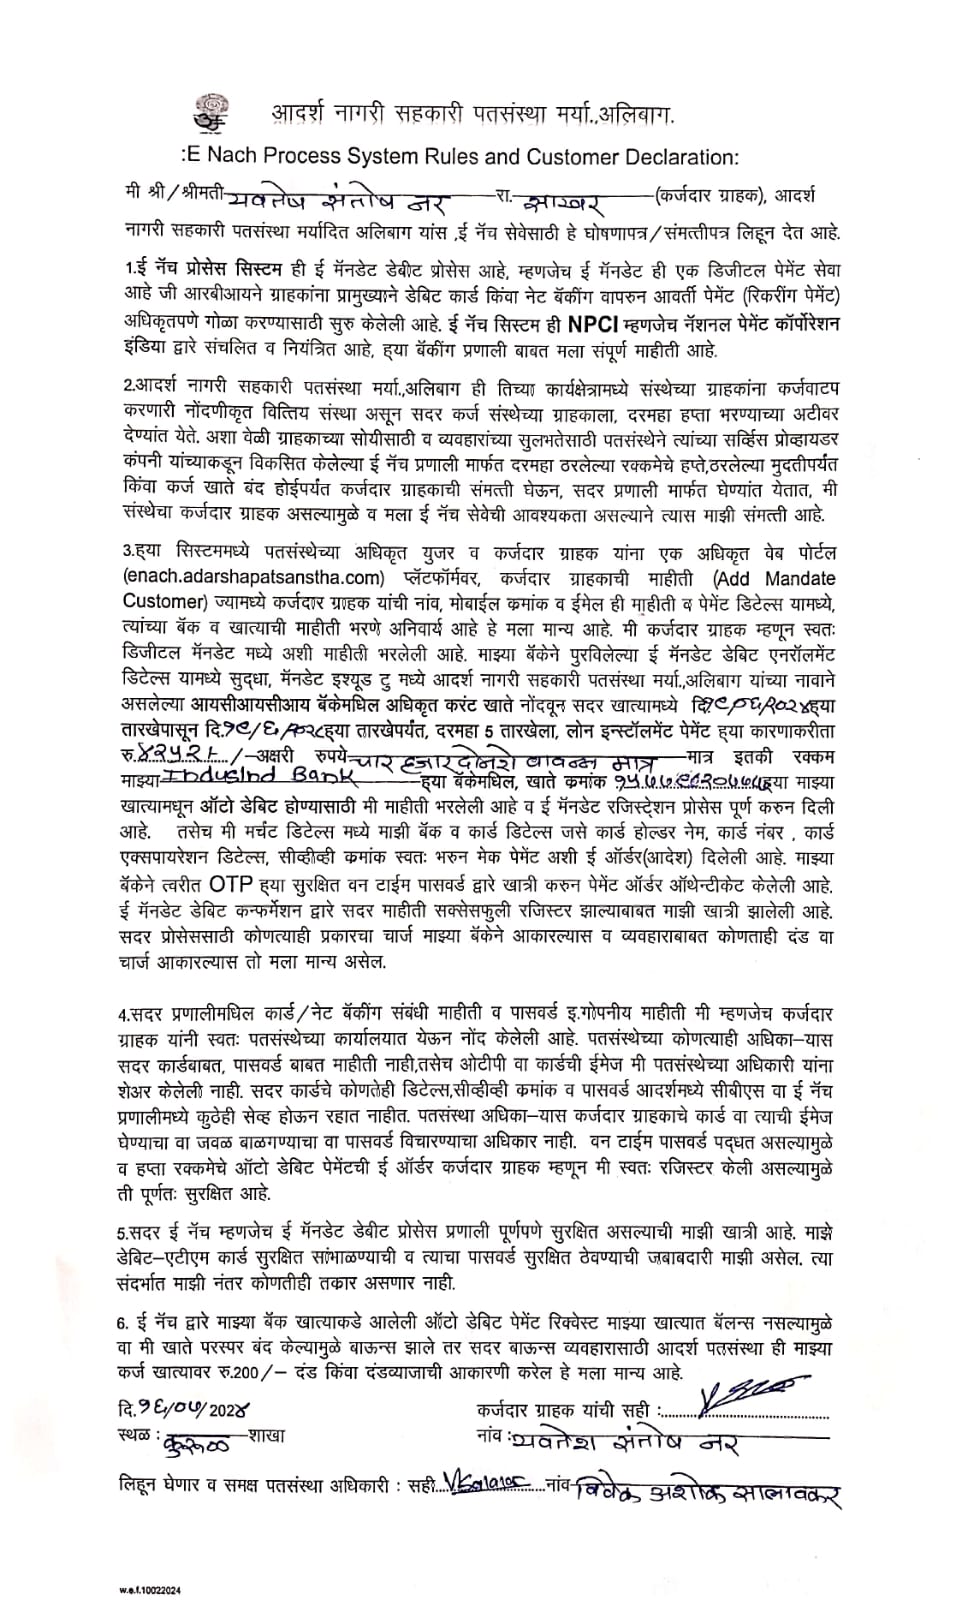 आदर्श नागरी सहकारी पतसंस्था मर्या.,अलिबाग.
:E Nach Process System Rules and Customer Declaration:
मी श्री/श्रीमती यवतेष संतोष नर रा. साखर (कर्जदार ग्राहक), आदर्श
नागरी सहकारी पतसंस्था मर्यादित अलिबाग यांस ,ई नॅच सेवेसाठी हे घोषणापत्र/संमत्तीपत्र लिहून देत आहे.
1.ई नॅच प्रोसेस सिस्टिम ही ई मॅनडेट डेबीट प्रोसेस आहे, म्हणजेच ई मॅनडेट ही एक डिजीटल पेमेंट सेवा
आहे जी आरबीआयने ग्राहकांना प्रामुख्याने डेबिट कार्ड किंवा नेट बॅकींग वापरुन आवर्ती पेमेंट (रिकरींग पेमेंट)
अधिकृतपणे गोळा करण्यासाठी सुरु केलेली आहे. ई नॅच सिस्टिम ही NPCI म्हणजेच नॅशनल पेमेंट कॉर्पोरेशन
इंडिया द्वारे संचलित व नियंत्रित आहे, ह्या बॅकींग प्रणाली बाबत मला संपूर्ण माहीती आहे.
2.आदर्श नागरी सहकारी पतसंस्था मर्या.,अलिबाग ही तिच्या कार्यक्षेत्रामध्ये संस्थेच्या ग्राहकांना कर्जवाटप
करणारी नोंदणीकृत वित्तिय संस्था असून सदर कर्ज संस्थेच्या ग्राहकाला, दरमहा हप्ता भरण्याच्या अटीवर
देण्यांत येते. अशा वेळी ग्राहकाच्या सोयीसाठी व व्यवहारांच्या सुलभतेसाठी पतसंस्थेने त्यांच्या सर्व्हिस प्रोव्हायडर
कंपनी यांच्याकडून विकसित केलेल्या ई नॅच प्रणाली मार्फत दरमहा ठरलेल्या रक्कमेचे हप्ते,ठरलेल्या मुदतीपर्यंत
किंवा कर्ज खाते बंद होईपर्यंत कर्जदार ग्राहकाची संमत्ती घेऊन, सदर प्रणाली मार्फत घेण्यांत येतात, मी
संस्थेचा कर्जदार ग्राहक असल्यामुळे व मला ई नॅच सेवेची आवश्यकता असल्याने त्यास माझी संमत्ती आहे.
3.ह्या सिस्टिममध्ये पतसंस्थेच्या अधिकृत युजर व कर्जदार ग्राहक यांना एक अधिकृत वेब पोर्टल
(enach.adarshapatsanstha.com) प्लॅटफॉर्मवर, कर्जदार ग्राहकाची माहीती (Add Mandate
Customer) ज्यामध्ये कर्जदार ग्राहक यांची नांव, मोबाईल क्रमांक व ईमेल ही माहीती व पेमेंट डिटेल्स यामध्ये,
त्यांच्या बॅक व खात्याची माहीती भरणे अनिवार्य आहे हे मला मान्य आहे. मी कर्जदार ग्राहक म्हणून स्वतः
डिजीटल मॅनडेट मध्ये अशी माहीती भरलेली आहे. माझ्या बॅकेने पुरविलेल्या ई मॅनडेट डेबिट एनरॉलमेंट
डिटेल्स यामध्ये सुद्धा, मॅनडेट इश्यूड टु मध्ये आदर्श नागरी सहकारी पतसंस्था मर्या.,अलिबाग यांच्या नावाने
असलेल्या आयसीआयसीआय बॅकेमधिल अधिकृत करंट खाते नोंदवून सदर खात्यामध्ये दि.१८/०६/२०२४ह्या
तारखेपासून दि.१८/६/२०२८ह्या तारखेपर्यंत, दरमहा 5 तारखेला, लोन इन्स्टॉलमेंट पेमेंट ह्या कारणाकरीता
रु.४२५२/-अक्षरी रुपये चार हजार दोनशे बावन्न मात्र मात्र इतकी रक्कम
माझ्या IndusInd Bank ह्या बॅकेमधिल, खाते क्रमांक ह्या माझ्या
खात्यामधून ऑटो डेबिट होण्यासाठी मी माहीती भरलेली आहे व ई मॅनडेट रजिस्ट्रेशन प्रोसेस पूर्ण करुन दिली
आहे. तसेच मी मर्चंट डिटेल्स मध्ये माझी बॅक व कार्ड डिटेल्स जसे कार्ड होल्डर नेम, कार्ड नंबर , कार्ड
एक्सपायरेशन डिटेल्स, सीव्हीव्ही क्रमांक स्वतः भरुन मेक पेमेंट अशी ई ऑर्डर(आदेश) दिलेली आहे. माझ्या
बॅकेने त्वरीत OTP ह्या सुरक्षित वन टाईम पासवर्ड द्वारे खात्री करुन पेमेंट ऑर्डर ऑथेन्टीकेट केलेली आहे.
ई मॅनडेट डेबिट कन्फर्मेशन द्वारे सदर माहीती सक्सेसफुली रजिस्टर झाल्याबाबत माझी खात्री झालेली आहे.
सदर प्रोसेससाठी कोणत्याही प्रकारचा चार्ज माझ्या बॅकेने आकारल्यास व व्यवहाराबाबत कोणताही दंड वा
चार्ज आकारल्यास तो मला मान्य असेल.
4.सदर प्रणालीमधिल कार्ड/नेट बॅकींग संबंधी माहीती व पासवर्ड इ.गोपनीय माहीती मी म्हणजेच कर्जदार
ग्राहक यांनी स्वतः पतसंस्थेच्या कार्यालयात येऊन नोंद केलेली आहे. पतसंस्थेच्या कोणत्याही अधिका–यास
सदर कार्डबाबत, पासवर्ड बाबत माहीती नाही,तसेच ओटीपी वा कार्डची ईमेज मी पतसंस्थेच्या अधिकारी यांना
शेअर केलेली नाही. सदर कार्डचे कोणतेही डिटेल्स,सीव्हीव्ही क्रमांक व पासवर्ड आदर्शमध्ये सीबीएस वा ई नॅच
प्रणालीमध्ये कुठेही सेव्ह होऊन रहात नाहीत. पतसंस्था अधिका–यास कर्जदार ग्राहकाचे कार्ड वा त्याची ईमेज
घेण्याचा वा जवळ बाळगण्याचा वा पासवर्ड विचारण्याचा अधिकार नाही. वन टाईम पासवर्ड पद्धत असल्यामुळे
व हप्ता रक्कमेचे ऑटो डेबिट पेमेंटची ई ऑर्डर कर्जदार ग्राहक म्हणून मी स्वतः रजिस्टर केली असल्यामुळे
ती पूर्णतः सुरक्षित आहे.
5.सदर ई नॅच म्हणजेच ई मॅनडेट डेबीट प्रोसेस प्रणाली पूर्णपणे सुरक्षित असल्याची माझी खात्री आहे. माझे
डेबिट–एटीएम कार्ड सुरक्षित सांभाळण्याची व त्याचा पासवर्ड सुरक्षित ठेवण्याची जबाबदारी माझी असेल. त्या
संदर्भात माझी नंतर कोणतीही तक्रार असणार नाही.
6. ई नॅच द्वारे माझ्या बॅक खात्याकडे आलेली ऑटो डेबिट पेमेंट रिक्वेस्ट माझ्या खात्यात बॅलन्स नसल्यामुळे
वा मी खाते परस्पर बंद केल्यामुळे बाऊन्स झाले तर सदर बाऊन्स व्यवहारासाठी आदर्श पतसंस्था ही माझ्या
कर्ज खात्यावर रु.200/– दंड किंवा दंडव्याजाची आकारणी करेल हे मला मान्य आहे.
दि.१६/०७/2024 कर्जदार ग्राहक यांची सही :
स्थळ : कुरूळ शाखा नांव : यवतेश संतोष नर
लिहून घेणार व समक्ष पतसंस्था अधिकारी : सही नांव विवेक अशोक सालावकर
w.e.f.10022024